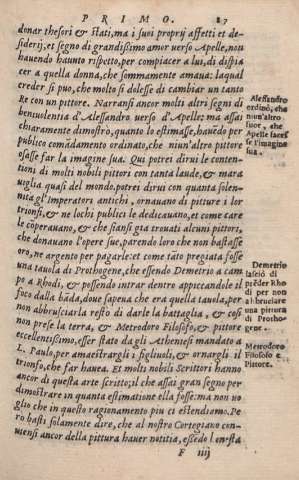 PRIMO. 87
donar thesori & stati, ma i suoi proprij affetti et de-
siderij, et segno di grandissimo amor verso Apelle, non
hauendo hauuto rispetto, per compiacer a lui, di dispia
cer a quella donna, che sommamente amaua: laqual
creder si puo, che molto si dolesse di cambiar un tanto
Re con un pittore. Narransi ancor molti altri segni di
beniuolentia d'Alessandro verso d'Apelle: ma assai
chiaramente dimostrò, quanto lo estimasse, hauẽdo per
publico comãdamento ordinato, che niun'altro pittore
osasse far la imagine sua. Qui potrei dirui le conten-
tioni di molti nobili pittori con tanta laude, & mara
uiglia quasi del mondo. potrei dirui con quanta solen-
nità gl'Imperatori antichi, ornauano di pitture i lor
trionfi, & ne lochi publici le dedicauano, et come care
le cōperauano, & che siansi gia trouati alcuni pittori,
che donauano l'opere sue, parendo loro che non bastasse
oro, ne argento per pagarle: et come tãto pregiata fosse
una tauola di Prothogene, che essendo Demetrio a cam
po a Rhodi, & possendo intrar dentro appiccandole il
foco dalla bãda, doue sapeua che era quella tauola, per
non abbrusciarla restò di darle la battaglia, & cosi
non prese la terra, & Metrodoro Filosofo, & pittore
eccellentissimo, esser stato da gli Atheniesi mandato a
L. Paulo, per amaestrargli i figliuoli, & ornargli il
trionfo, che far hauea. Et molti nobili Scrittori hanno
ancor di questa arte scritto; il che assai gran segno per
dimostrare in quanta estimatione ella fosse: ma non uo
glio che in questo ragionamento piu ci estendiamo. Pe
rò basti solamente dire, che al nostro Cortegiano con-
uiensi ancor della pittura hauer notitia, essẽdo honesta
F iiij
Alessandro
ordinò, che
niun'altro
fuor, che
Apelle facesse
l'imagine
sua.
Demetrio
lasciò di
prẽder Rho
di per non
abbruciare
una pittura
di Protho-
gene.
Metrodoro
Filosofo e
Pittore.